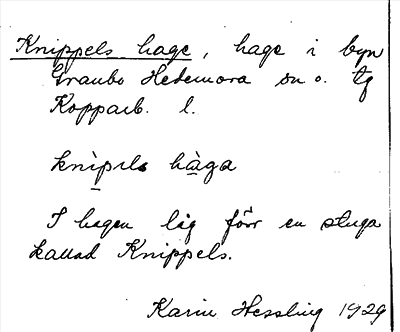 Knippels hage, hage i byn
Graubo Hedemora sn o. tg
Kopparb. l.
knìpəls hàga
I hagen låg förr en stuga
kallad Knippels.
Karin Hessling 1929